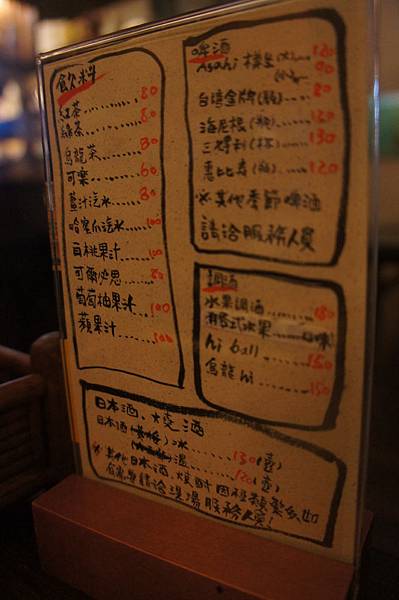 飲料
紅茶........80
綠茶........80
烏龍茶........80
可樂........60
薑汁汽水....80
哈蜜瓜汽水...100
白桃果汁....100
可爾必思....80
葡萄柚果汁...100
蘋果汁......100
啤酒
Asahi 樽生(大)...120
(小)...90
台灣金牌(瓶)....80
海尼根(瓶)....130
三得利(杯)....130
惠比壽(瓶)....120
※其他季節啤酒
請洽服務人員
調酒
水果調酒......180
hi ball......150
烏龍 hi......150
日本酒.燒酒
日本酒 冰......130(壺)
溫......120(壺)
※其他日本酒,燒酎因種類繁多如
有需要請洽現場服務人員!